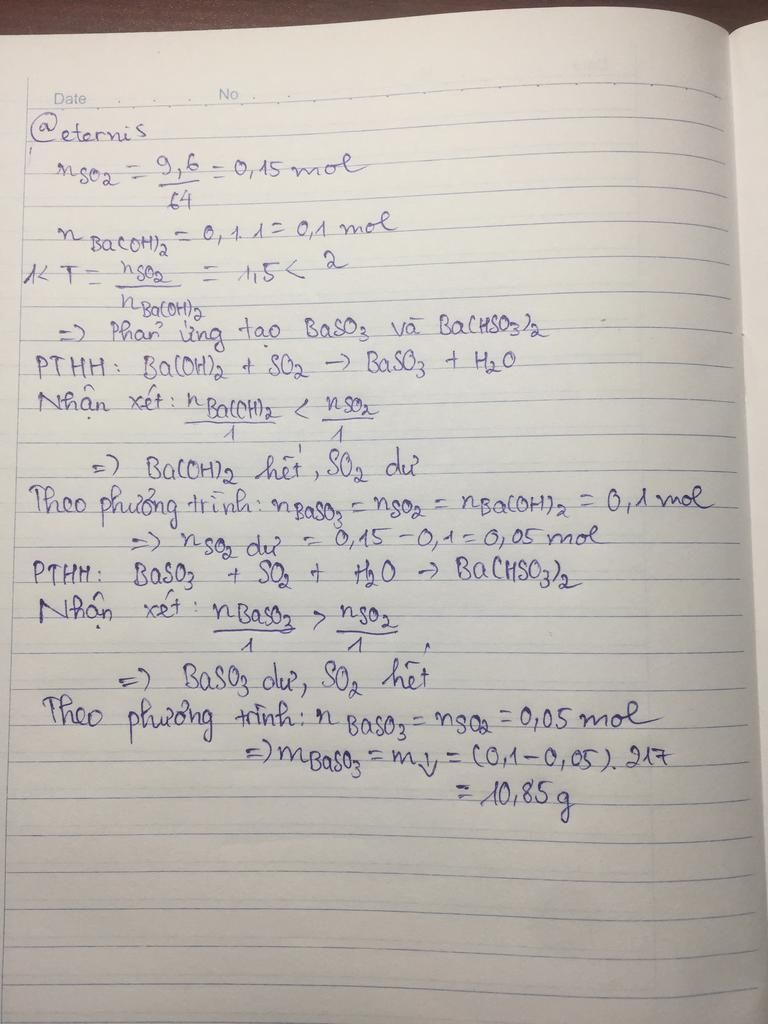 Date No
@eternis
nSO2 = 9,6/64 = 0,15 mol
nBa(OH)2 = 0,1.1 = 0,1 mol
1< T = nSO2/nBa(OH)2 = 1,5 < 2
=> Phản ứng tạo BaSO3 và Ba(HSO3)2
PTHH: Ba(OH)2 + SO2 → BaSO3 + H2O
Nhận xét: nBa(OH)2/1 < nSO2/1
=> Ba(OH)2 hết, SO2 dư
Theo phương trình: nBaSO3 = nSO2 = nBa(OH)2 = 0,1 mol
=> nSO2 dư = 0,15 - 0,1 = 0,05 mol
PTHH: BaSO3 + SO2 + H2O → Ba(HSO3)2
Nhận xét: nBaSO3/1 > nSO2/1
=> BaSO3 dư, SO2 hết
Theo phương trình: nBaSO3 = nSO2 = 0,05 mol
=> mBaSO3 = m↓ = (0,1 - 0,05).217
= 10,85g